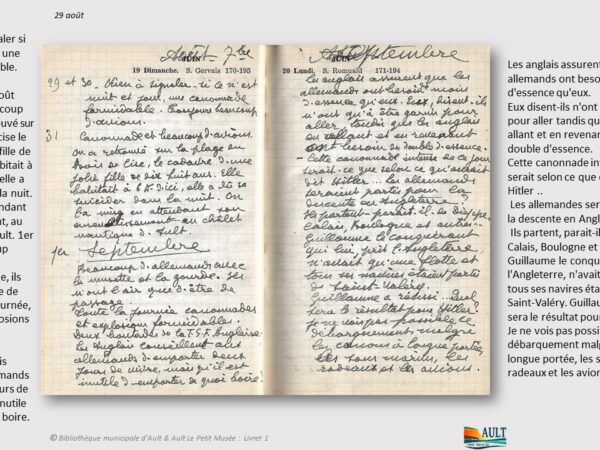 29 août
aler si
une
ble.
oût
coup
ouvé sur
cise le
fille de
bitait à
elle a
la nuit.
ndant
nt, au
ult. 1er
up
e, ils
e de
urnée,
osions
is
mands
urs de
nutile
boire.
Août 7bre
JUIN
19 Dimanche. S. Gervais 170-195
29 et 30 - Rien à signaler, si ce n'est
nuit et jour, une canonnade
formidable. Toujours beaucoup
d'avions.
31 Canonnade et beaucoup d'avions.
On a retrouvé sur la plage au
Bois de Cise, le cadavre d'une
jolie fille de dix huit ans. Elle
habitait à 6 K. d'ici, elle a dû se
suicider dans la nuit. On
l'a mise en attendant son
au châlet
nautique d'Ault.
1er Septembre
Beaucoup d'allemands avec
la musette et la gourde. Ils
n'ont l'air que d'être de
passage.
Toute la journée, canonnades
et explosions formidables.
Deux bontadés de la T.S.F. Anglaise.
Les Anglais conseillent aux
allemands d'emporter deux
jours de vivre, mais qu'il est
inutile d'emporter de quoi boire!
Septembre
JUIN
20 Lundi. S. Romuald 171-194
Les anglais assurent que les
allemands ont besoin moins
d'essence qu'eux. Eux, disent-ils
n'ont qu'à être garnis pour
aller tandis que les anglais
en allant et en revenant
ont besoin de double d'essence.
- Cette canonnade intense ce jour
serait - ce que selon ce qu'avait
dit Hitler... Les allemands
seraient partis pour la
descente en Angleterre?
Ils partent, parait-il de Dieppe,
Calais, Boulogne et
Guillaume le conquérant
qui lui, prit l'Angleterre,
n'avait qu'une flotte et
tous ses navires étaient partis
de Saint-Valéry.
Guillaume a réussi... Quel
sera le résultat pour Hitler?
Je ne vois pas possible ce
débarquement malgré
les canons à longue portée,
les sous marins, les
radeaux et les avions.
Les anglais assurent
allemands ont beso
d'essence qu'eux.
Eux disent-ils n'ont
pour aller tandis qu
allant et en revenan
double d'essence.
Cette canonnade int
serait selon ce que d
Hitler ..
Les allemandes ser
la descente en Angl
Ils partent, parait-il
Calais, Boulogne et
Guillaume le conqu
l'Angleterre, n'avait
tous ses navires éta
Saint-Valéry. Guillau
sera le résultat pour
Je ne vois pas possi
débarquement malg
longue portée, les s
radeaux et les avion
© Bibliothèque municipale d'Ault & Ault Le Petit Musée : Livret 1
AULT